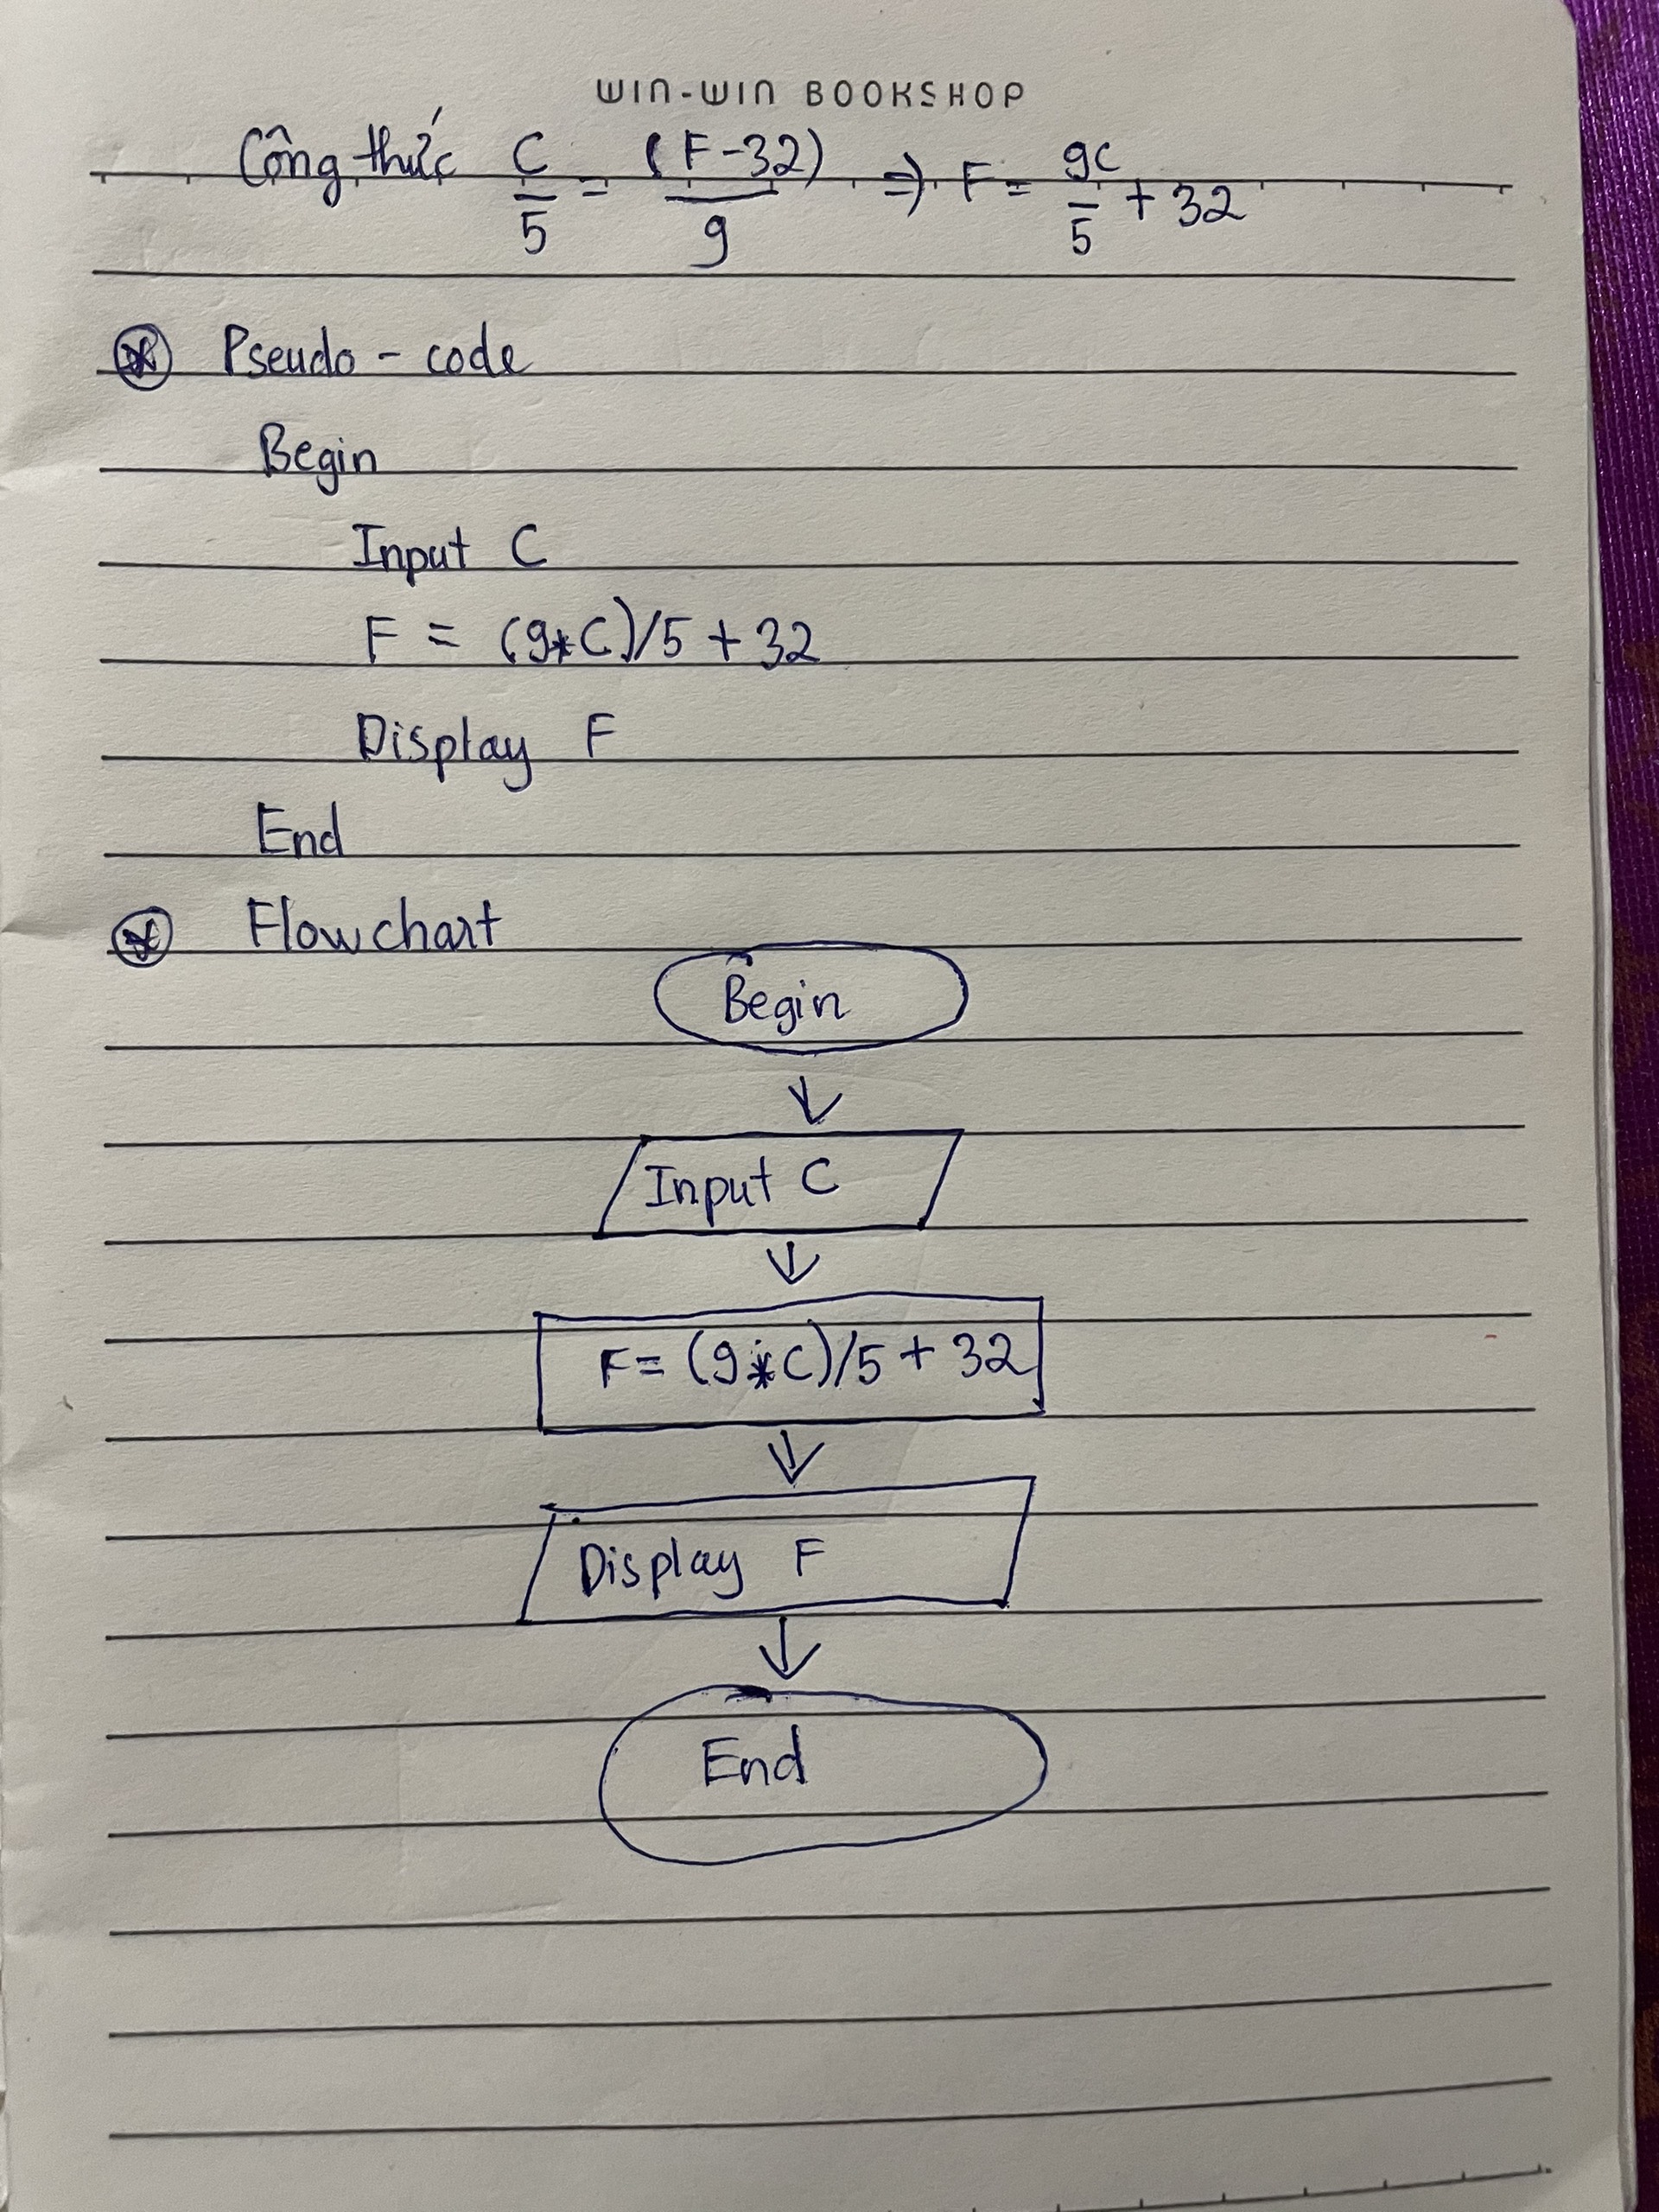 WIN-WIN BOOKSHOP
Công thức C/5 = (F-32)/9 => F = 9C/5 + 32
Pseudo - code
Begin
Input C
F = (9*C)/5 + 32
Display F
End
Flowchart
Begin
Input C
F = (9*C)/5 + 32
Display F
End